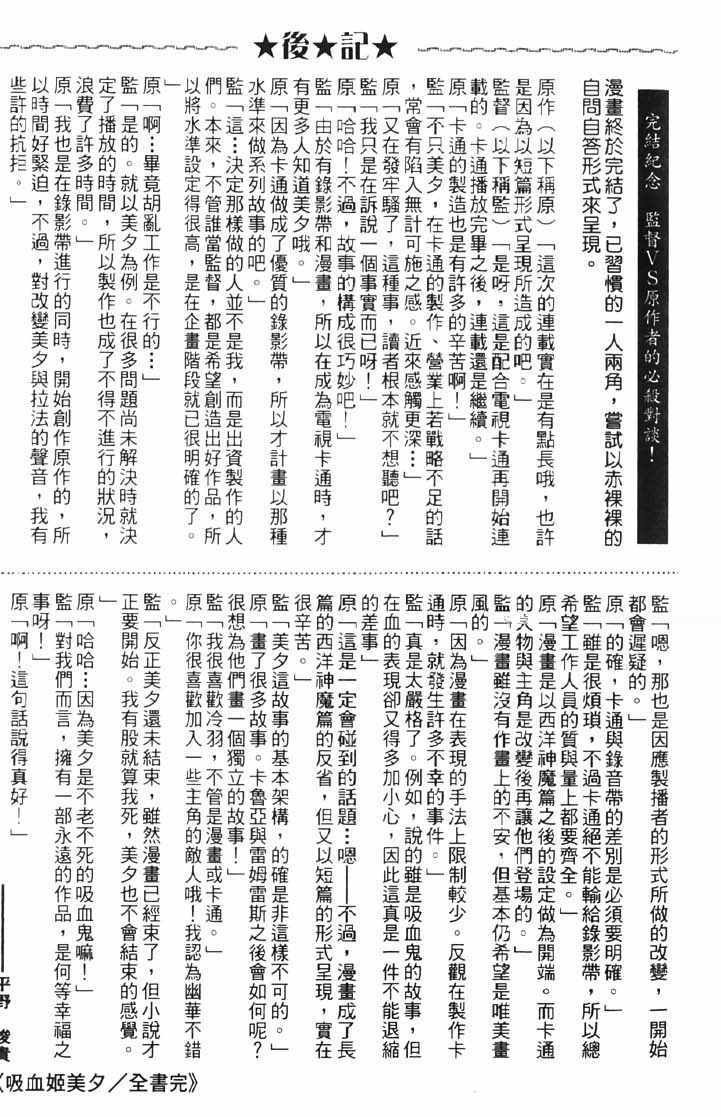 ★後★記★
完結紀念 監督VS原作者的必殺對談！
漫畫終於完結了，已習慣的一人兩角，嘗試以赤裸裸的
自問自答形式來呈現。
原作（以下稱原）「這次的連載實在是有點長哦，也許
是因為以短篇形式呈現所造成的吧。」
監督（以下稱監）「是呀，這是配合電視卡通再開始連
載的。卡通播放完畢之後，連載還是繼續。」
原「卡通的製造也是有許多的辛苦啊！」
監「不只美夕，在卡通的製作、營業上若戰略不足的話
，常會有陷入無計可施之感。近來感觸更深…」
原「又在發牢騷了，這種事，讀者根本就不想聽吧？」
監「我只是在訴說一個事實而已呀！」
原「哈哈！不過，故事的構成很巧妙吧！」
監「由於有錄影帶和漫畫，所以在成為電視卡通時，才
有更多人知道美夕哦。」
原「因為卡通做成了優質的錄影帶，所以才計畫以那種
水準來做系列故事的吧。」
監「這…決定那樣做的人並不是我，而是出資製作的人
們。本來，不管誰當監督，都是希望創造出好作品，所
以將水準設定得很高，是在企畫階段就已很明確的了。
」
原「啊…畢竟胡亂工作是不行的…」
監「是的。就以美夕為例。在很多問題尚未解決時就決
定了播放的時間，所以製作也成了不得不進行的狀況，
浪費了許多時間。」
原「我也是在錄影帶進行的同時，開始創作原作的，所
以時間好緊迫，不過，對改變美夕與拉法的聲音，我有
些許的抗拒。」
監「嗯，那也是因應製播者的形式所做的改變，一開始
都會遲疑的。」
原「的確，卡通與錄音帶的差別是必須要明確。」
監「雖是很煩瑣，不過卡通絕不能輸給錄影帶，所以總
希望工作人員的質與量上都要齊全。」
原「漫畫是以西洋神魔篇之後的設定做為開端。而卡通
的人物與主角是改變後再讓他們登場的。」
監「漫畫雖沒有作畫上的不安，但基本仍希望是唯美畫
風的。」
原「因為漫畫在表現的手法上限制較少。反觀在製作卡
通時，就發生許多不幸的事件。」
監「真是太嚴格了。例如，說的雖是吸血鬼的故事，但
在血的表現卻又得多加小心，因此這真是一件不能退縮
的差事」
原「這是一定會碰到的話題…嗯——不過，漫畫成了長
篇的西洋神魔篇的反省，但又以短篇的形式呈現，實在
很辛苦。」
監「美夕這故事的基本架構，的確是非這樣不可的。」
原「畫了很多故事。卡魯亞與雷姆雷斯之後會如何呢？
很想為他們畫一個獨立的故事！」
監「我很喜歡冷羽，不管是漫畫或卡通。」
原「你很喜歡加入一些主角的敵人哦！我認為幽華不錯
。」
監「反正美夕還未結束，雖然漫畫已經束了，但小說才
正要開始。我有股就算我死，美夕也不會結束的感覺。
」
原「哈哈…因為美夕是不老不死的吸血鬼嘛！」
監「對我們而言，擁有一部永遠的作品，是何等幸福之
事呀！」
原「啊！這句話說得真好！」
——平野 俊貴
《吸血姬美夕／全書完》